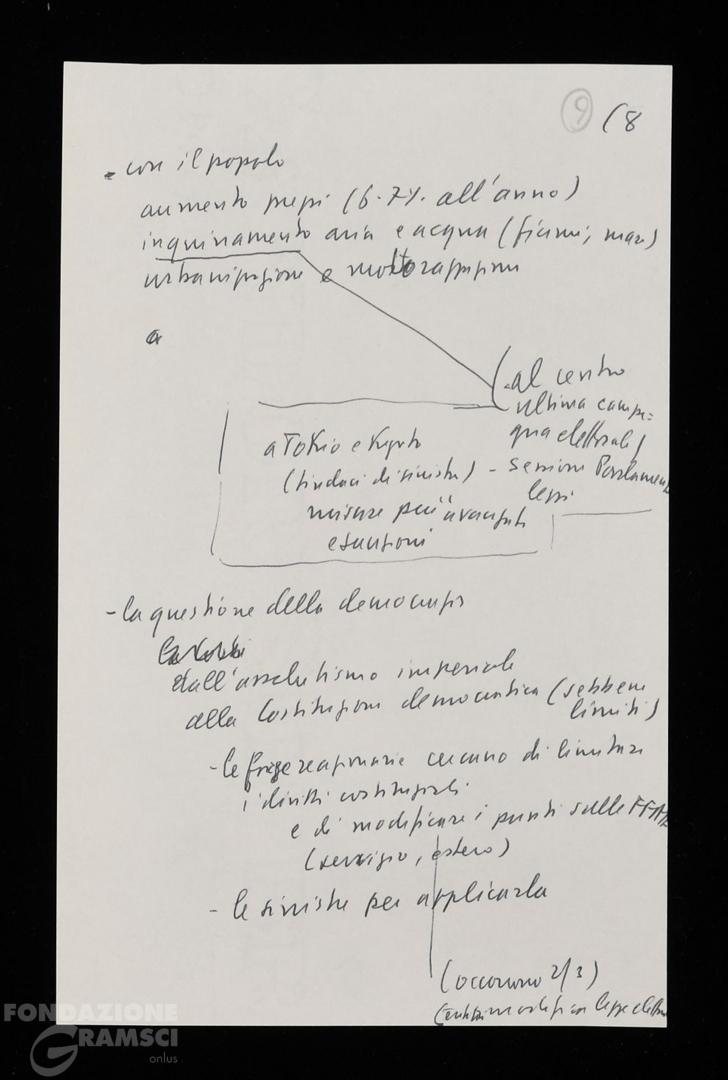 9 (8
- con il popolo
aumento prezzi (6-7%. all'anno)
inquinamento aria e acqua (fiumi, mare)
urbanizzazione e motorizzazione
a
(-al centro
ultima campa=
gna elettorale)
a Tokio e Kyoto
(sindaci di sinistra) - sessione Parlamento
leggi
misure più avanzate
e sanzioni
- la questione della democrazia
dall'assolutismo imperiale
alla Costituzione democratica (sebbene
limiti)
- le forze reazionarie cercano di limitare
i diritti costituzionali
e di modificare i punti sulle FFAA
(servizio, estero)
- le sinistre per applicarla
(occorrono 2/3)
legge
FONDAZIONE
GRAMSCI
onlus